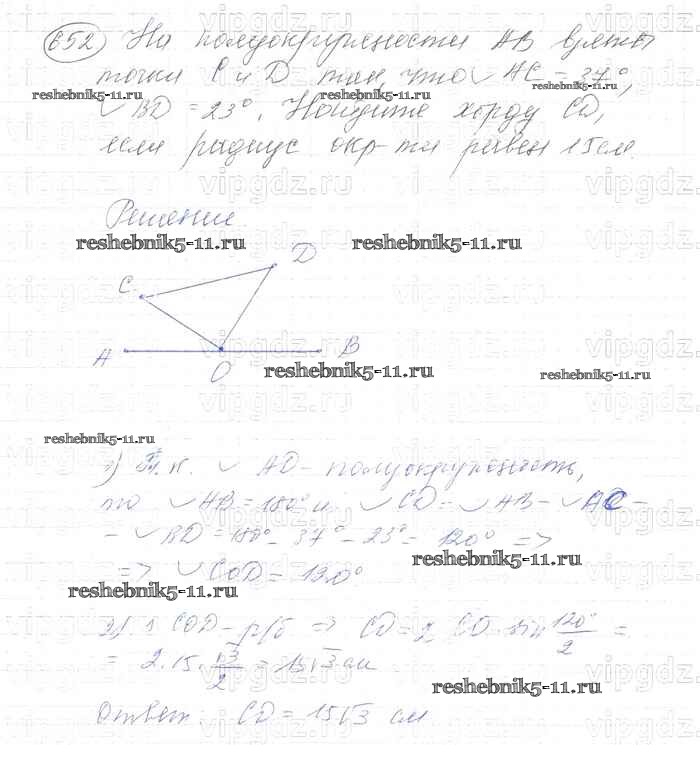 652 На полуокружности АВ взяты
точки С и D так, что ◡ АС = 37°,
reshebnik5-11.ru reshebnik5-11.ru reshebnik5-11.ru
◡ BD = 23°. Найдите хорду CD,
если радиус окр-ти равен 15 см.
Решение
reshebnik5-11.ru reshebnik5-11.ru
D
C
A O B
reshebnik5-11.ru reshebnik5-11.ru
reshebnik5-11.ru
1) Т.к. ◡ AD - полуокружность,
то ◡ AB = 180° и ◡ CD = ◡ AB - ◡ AC -
- ◡ BD = 180° - 37° - 23° = 120° =>
reshebnik5-11.ru
=> ◡ COD = 120°
reshebnik5-11.ru
2) COD - р/б => CD = 2 CO · sin 120°/2 =
= 2 · 15 · √3/2 = 15√3 см
reshebnik5-11.ru
Ответ: CD = 15√3 см
vipgdz.ru